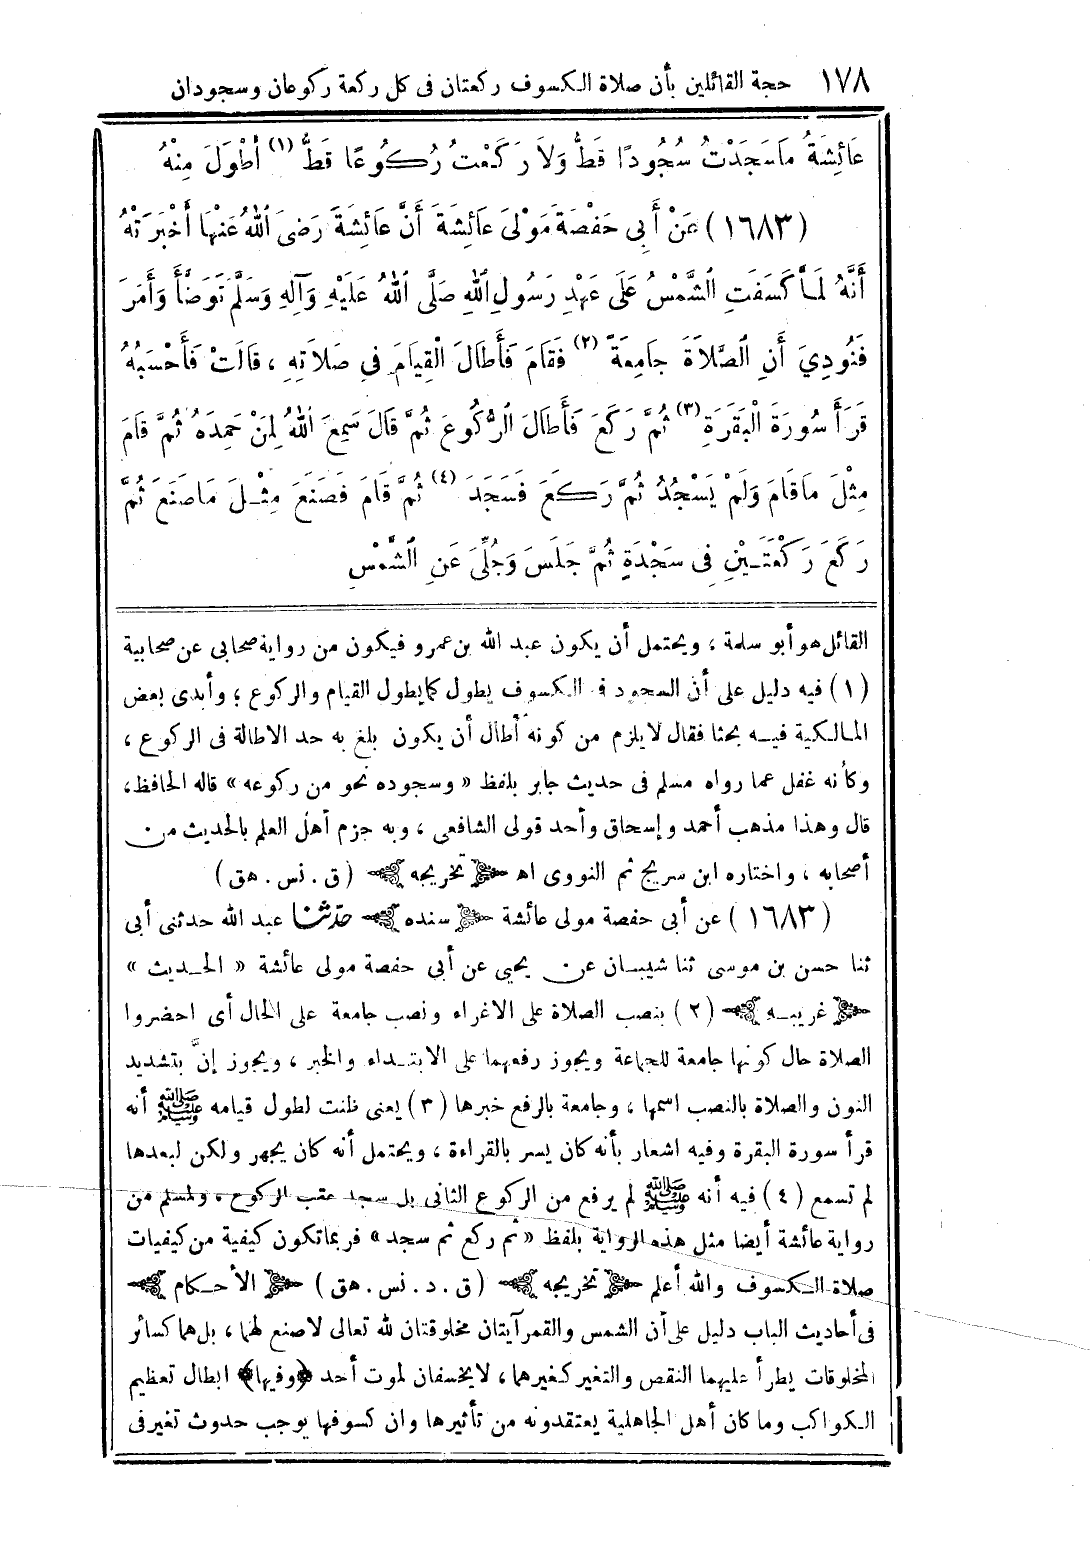 ١٧٨ حجة القائلين بأن صلاة الكسوف ركعتان فى كل ركعة ركوعان وسجودان
عَائِشَةُ مَاسَجَدْتُ سُجُودًا قَطُّ وَلاَ رَكَعْتُ رُكُوعًا قَطُّ (١) أَطْوَلَ مِنْهُ
(١٦٨٣) عَنْ أَبِى حَفْصَةَ مَوْلَى عَائِشَةَ أَنَّ عَائِشَةَ رَضِىَ اللهُ عَنْهَا أَخْبَرَتْهُ
أَنَّهُ لَمَّا كَسَفَتِ الشَّمْسُ عَلَى عَهْدِ رَسُولِ اللهِ صَلَّى اللهُ عَلَيْهِ وَآلِهِ وَسَلَّمَ تَوَضَّأَ وَأَمَرَ
فَنُودِيَ أَنِ الصَّلاَةَ جَامِعَةً (٢) فَقَامَ فَأَطَالَ الْقِيَامَ فِى صَلاَتِهِ ، قَالَتْ فَأَحْسَبُهُ
قَرَأَ سُورَةَ الْبَقَرَةِ (٣) ثُمَّ رَكَعَ فَأَطَالَ الرُّكُوعَ ثُمَّ قَالَ سَمِعَ اللهُ لِمَنْ حَمِدَهُ ثُمَّ قَامَ
مِثْلَ مَاقَامَ وَلَمْ يَسْجُدْ ثُمَّ رَكَعَ فَسَجَدَ (٤) ثُمَّ قَامَ فَصَنَعَ مِثْلَ مَاصَنَعَ ثُمَّ
رَكَعَ رَكْعَتَيْنِ فِى سَجْدَةٍ ثُمَّ جَلَسَ وَجُلِّىَ عَنِ الشَّمْسِ
القائل هو أبو سلمة ، ويحتمل أن يكون عبد الله بن عمرو فيكون من رواية صحابى عن صحابية
(١) فيه دليل على أن السجود فى الكسوف يطول كما يطول القيام والركوع ؛ وأبدى بعض
المالكية فيه بحثا فقال لايلزم من كونه أطال أن يكون بلغ به حد الاطالة فى الركوع ،
وكأنه غفل عما رواه مسلم فى حديث جابر بلفظ « وسجوده نحو من ركوعه » قاله الحافظ،
قال وهذا مذهب أحمد وإسحاق وأحد قولى الشافعى ، وبه جزم أهل العلم بالحديث من
أصحابه ، واختاره ابن سريج ثم النووى اهـ ﴿تخريجه﴾ (ق . نس . هق)
(١٦٨٣) عن أبى حفصة مولى عائشة ﴿سنده﴾ حدّثنا عبد الله حدثنى أبى
ثنا حسن بن موسى ثنا شيبان عن يحيى عن أبى حفصة مولى عائشة « الحديث »
﴿غريبه﴾ (٢) بنصب الصلاة على الاغراء ونصب جامعة على الحال أى احضروا
الصلاة حال كونها جامعة للجماعة ويجوز رفعهما على الابتداء والخبر ، ويجوز إنّ بتشديد
النون والصلاة بالنصب اسمها ، وجامعة بالرفع خبرها (٣) يعنى ظنت لطول قيامه ﷺ أنه
قرأ سورة البقرة وفيه اشعار بأنه كان يسر بالقراءة ، ويحتمل أنه كان يجهر ولكن لبعدها
لم تسمع (٤) فيه أنه ﷺ لم يرفع من الركوع الثانى بل سجد عقب الركوع ، ولمسلم من
رواية عائشة أيضا مثل هذه الرواية بلفظ « ثم ركع ثم سجد » فربما تكون كيفية من كيفيات
صلاة الكسوف والله أعلم ﴿تخريجه﴾ (ق . د . نس . هق) ﴿الأحكام﴾
فى أحاديث الباب دليل على أن الشمس والقمر آيتان مخلوقتان لله تعالى لاصنع لهما ، بل هما كسائر
المخلوقات يطرأ عليهما النقص والتغير كغيرهما ، لايخسفان لموت أحد ﴿وفيها﴾ ابطال تعظيم
الكواكب وما كان أهل الجاهلية يعتقدونه من تأثيرها وان كسوفها يوجب حدوث تغير فى